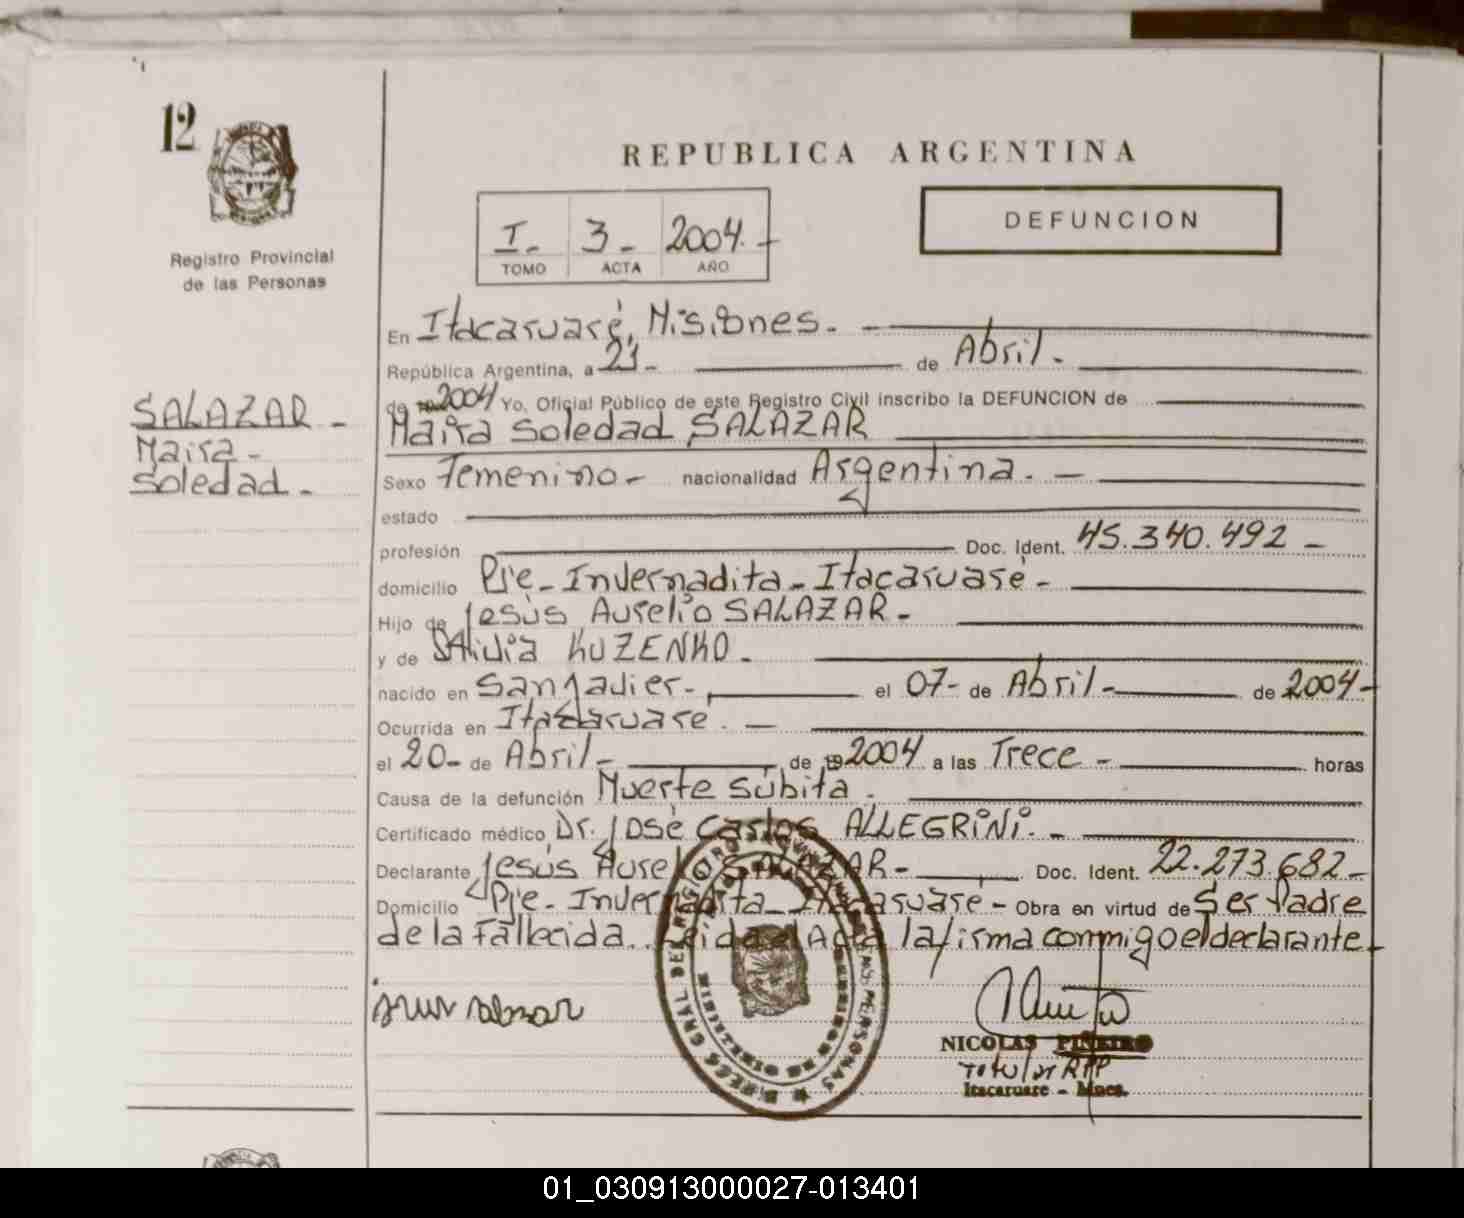 12
REPUBLICA ARGENTINA
I. 3 2004.
TOMO ACTA AÑO
DEFUNCION
Registro Provincial
de las Personas
SALAZAR
Maira
Soledad.
En Itacaruaré, Misiones.
República Argentina, a 21 de Abril.
de 19 2004 Yo, Oficial Público de este Registro Civil inscribo la DEFUNCION de
Maira Soledad SALAZAR
Sexo Femenino nacionalidad Argentina.
estado
profesión Doc. Ident. 45.340.492
domicilio Pje. Invernadita - Itacaruaré
Hijo de Jesús Aurelio SALAZAR
y de Silvia KUZENKO.
nacido en San Javier el 07 de Abril de 2004
Ocurrida en Itacaruaré.
el 20 de Abril de 19 2004 a las Trece horas
Causa de la defunción Muerte súbita.
Certificado médico Dr. José Carlos ALLEGRINI.
Declarante Jesús Aurelio SALAZAR Doc. Ident. 22.273.682
Domicilio Pje. Invernadita - Itacaruaré - Obra en virtud de Ser Padre
de la Fallecida. Leida el Acta la firma conmigo el declarante
NICOLAS PIÑEIRO
Titular RPP
Itacaruare - Mnes.
01_030913000027-013401